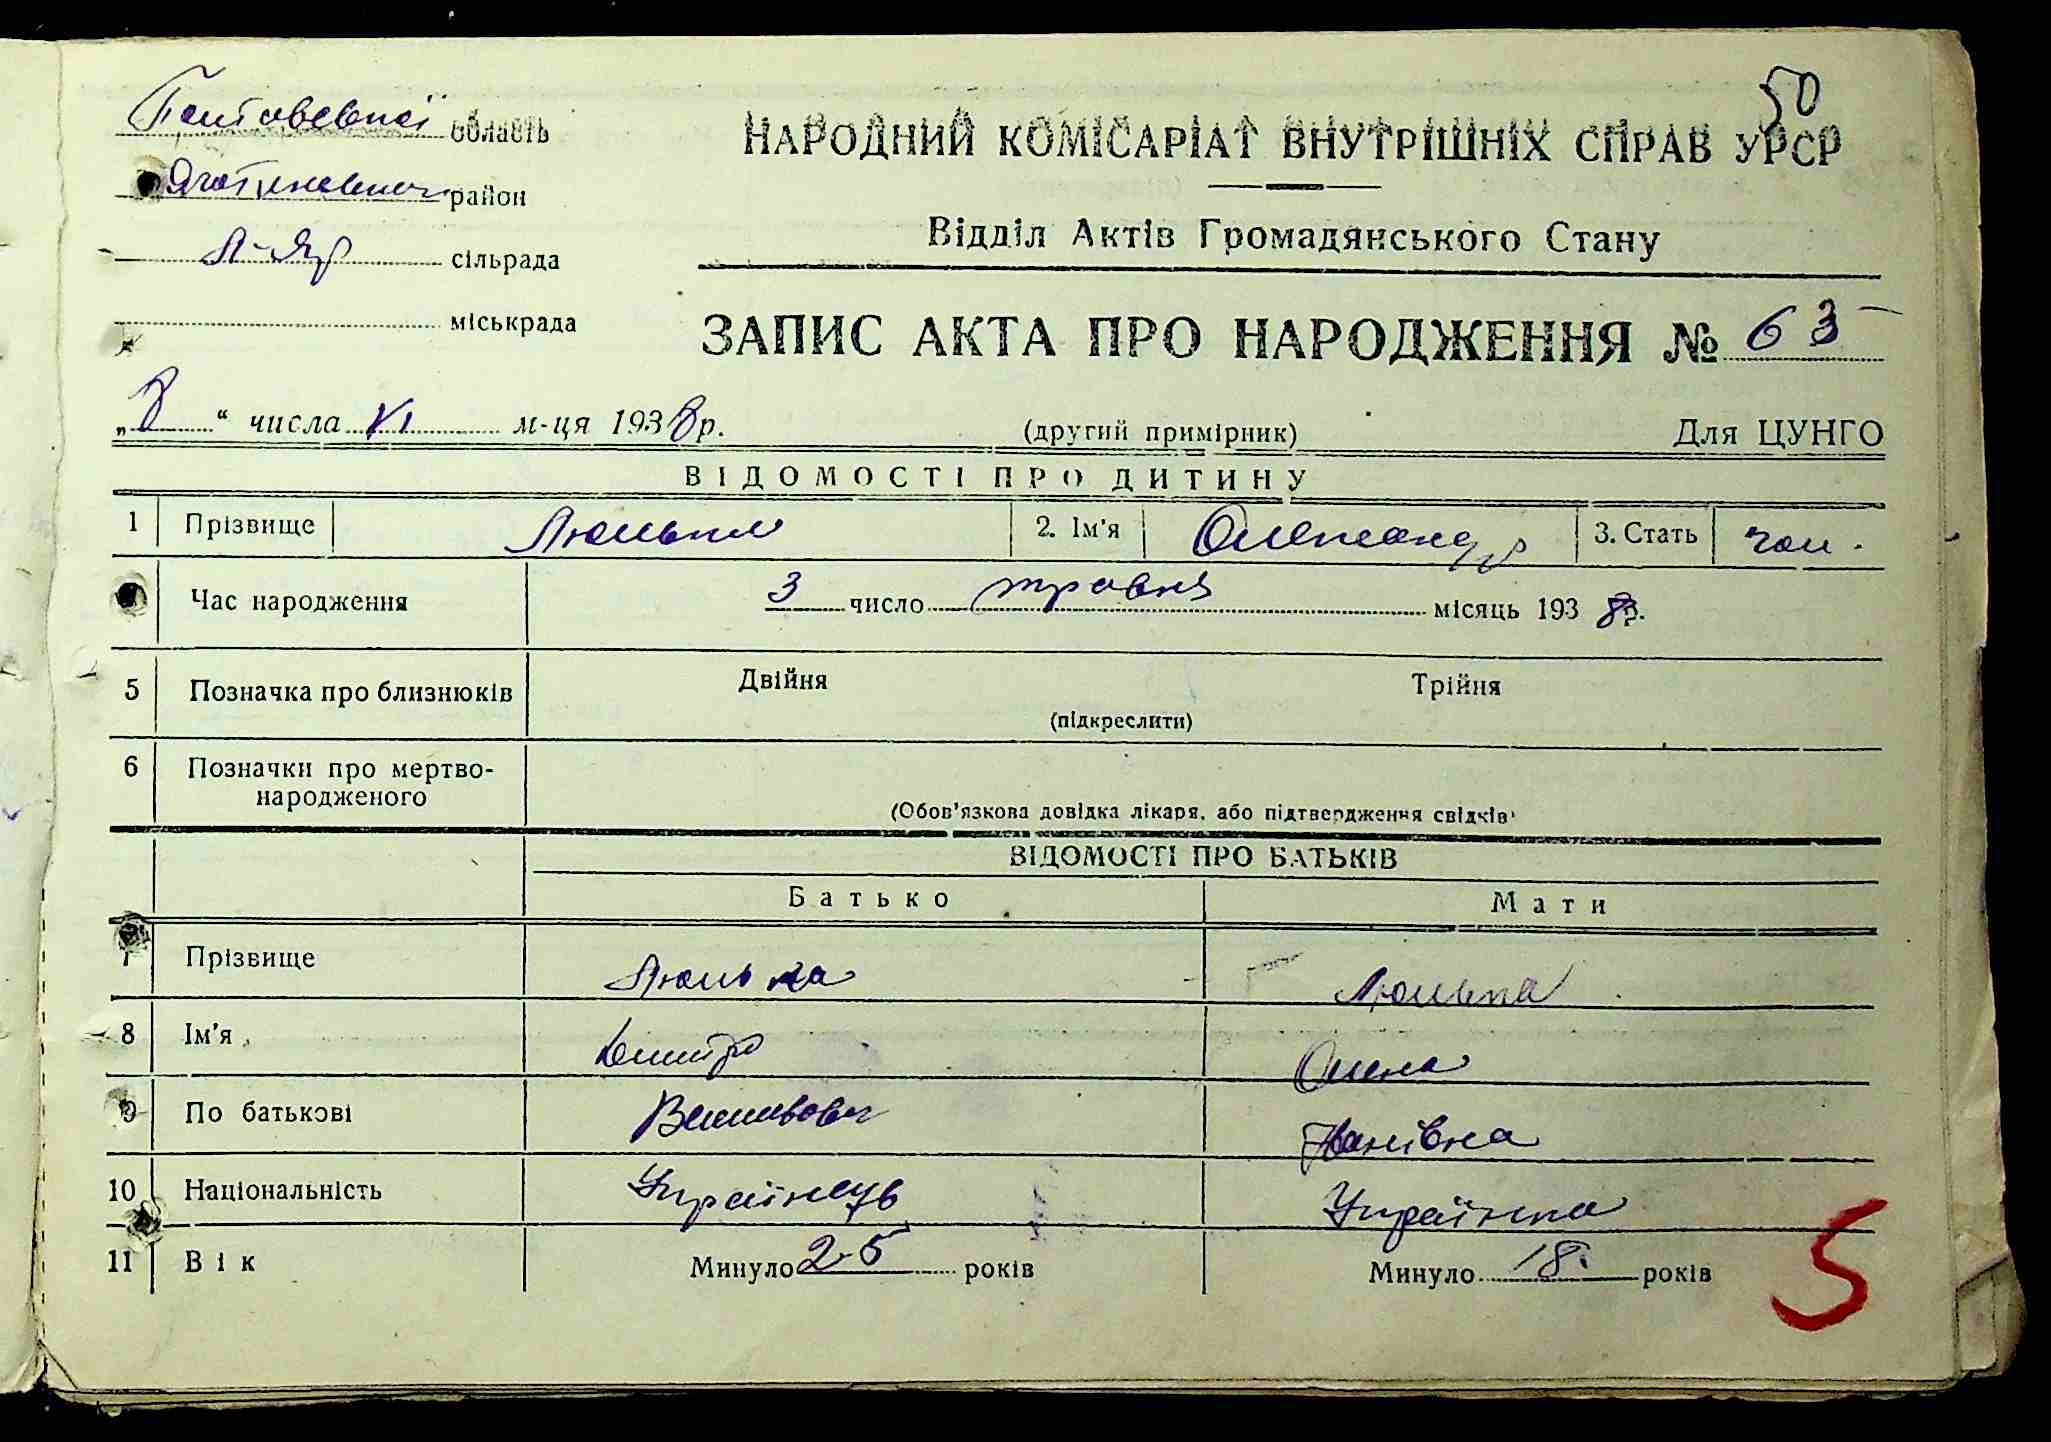 50
Полтавської область
НАРОДНИЙ КОМІСАРІАТ ВНУТРІШНІХ СПРАВ УРСР
Яготинський район
Відділ Актів Громадянського Стану
Л-Яр сільрада
міськрада
ЗАПИС АКТА ПРО НАРОДЖЕННЯ № 63
„8“ числа VI м-ця 1938 р.
(другий примірник)
Для ЦУНГО
ВІДОМОСТІ ПРО ДИТИНУ
1 Прізвище Люлька 2. Ім'я Олександр 3. Стать чол.
Час народження 3 число травня місяць 1938 р.
5 Позначка про близнюків Двійня Трійня
(підкреслити)
6 Позначки про мертво-
народженого
(Обов'язкова довідка лікаря, або підтвердження свідків)
ВІДОМОСТІ ПРО БАТЬКІВ
Батько Мати
7 Прізвище Люлька Люлька
8 Ім'я Дмитро Олена
9 По батькові Іванівна
10 Національність Українець Українка
11 Вік Минуло 25 років Минуло 18 років
5